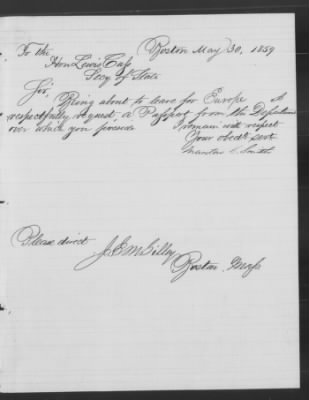 To the Boston May 30, 1859
Hon Lewis Cass
Secy of State
Sir, Being about to leave for Europe I
respectfully request a Passport from the Department
over which you preside I remain with respect
Your obedt servt
Smith
Please direct
Boston Mass